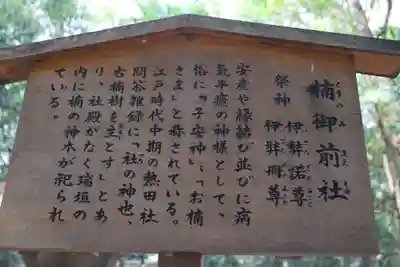 楠御前社
くすのみまえしゃ
祭神 伊弉諾尊
伊弉冊尊
安産や縁結び並びに病
気平癒の神様として、
俗に「子安神」、「お楠
さま」と称されている。
江戸時代中期の熱田社
問答雑録に「社の神也、
古楠樹を主とす」とあ
り、社殿がなく瑞垣の
内に楠の神木が祀られ
ている。